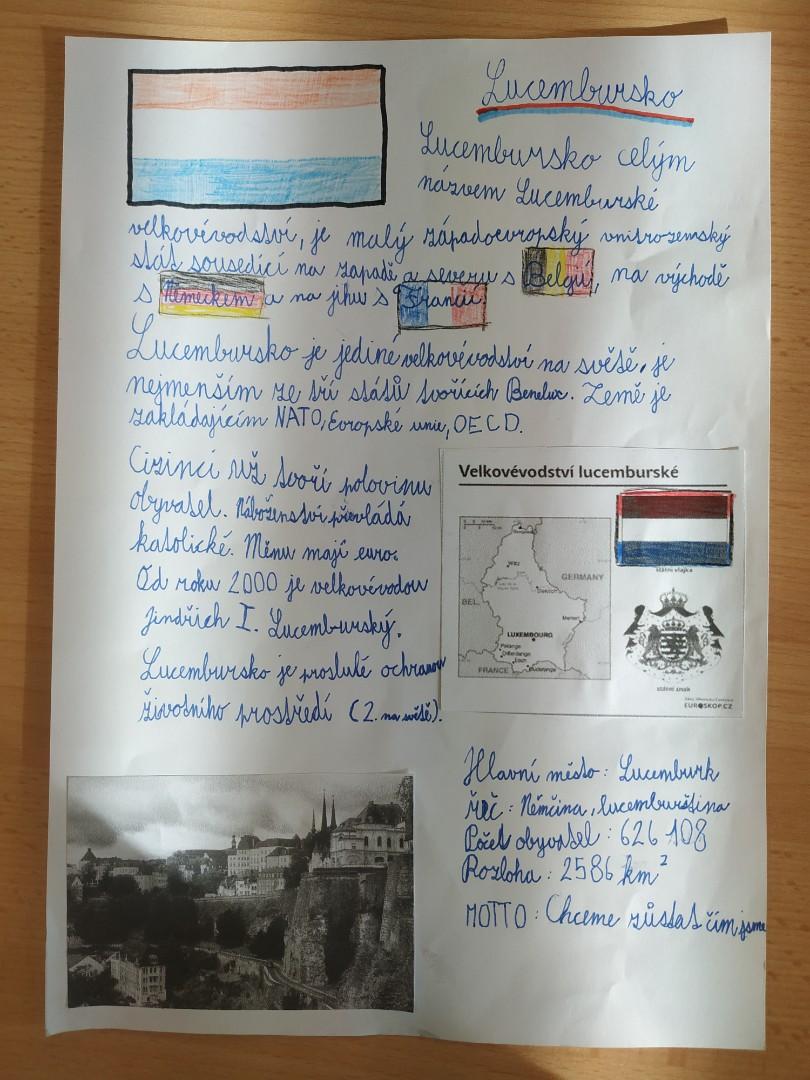 Lucembursko
Lucembursko celým
názvem Lucemburské
velkovévodství, je malý západoevropský vnitrozemský
stát sousedící na západě a severu s Belgií, na východě
s Německem a na jihu s Francií.
Lucembursko je jediné velkovévodství na světě, je
nejmenším ze tří států tvořících Benelux. Země je
zakládajícím NATO, Evropské unie, OECD.
Cizinci už tvoří polovinu
obyvatel. Náboženství převládá
katolické. Měnu mají euro.
Od roku 2000 je velkovévodou
Jindřich I. Lucemburský.
Lucembursko je proslulé ochranou
životního prostředí (2. na světě).
Velkovévodství lucemburské
státní vlajka
GERMANY
BEL.
LUXEMBOURG
Petange
Differdange
Esch
Dudelange
FRANCE
státní znak
EUROSKOP.CZ
Hlavní město: Lucemburk
Řeč: Němčina, lucemburština
Počet obyvatel: 626 108
Rozloha: 2586 km²
MOTTO: Chceme zůstat čím jsme